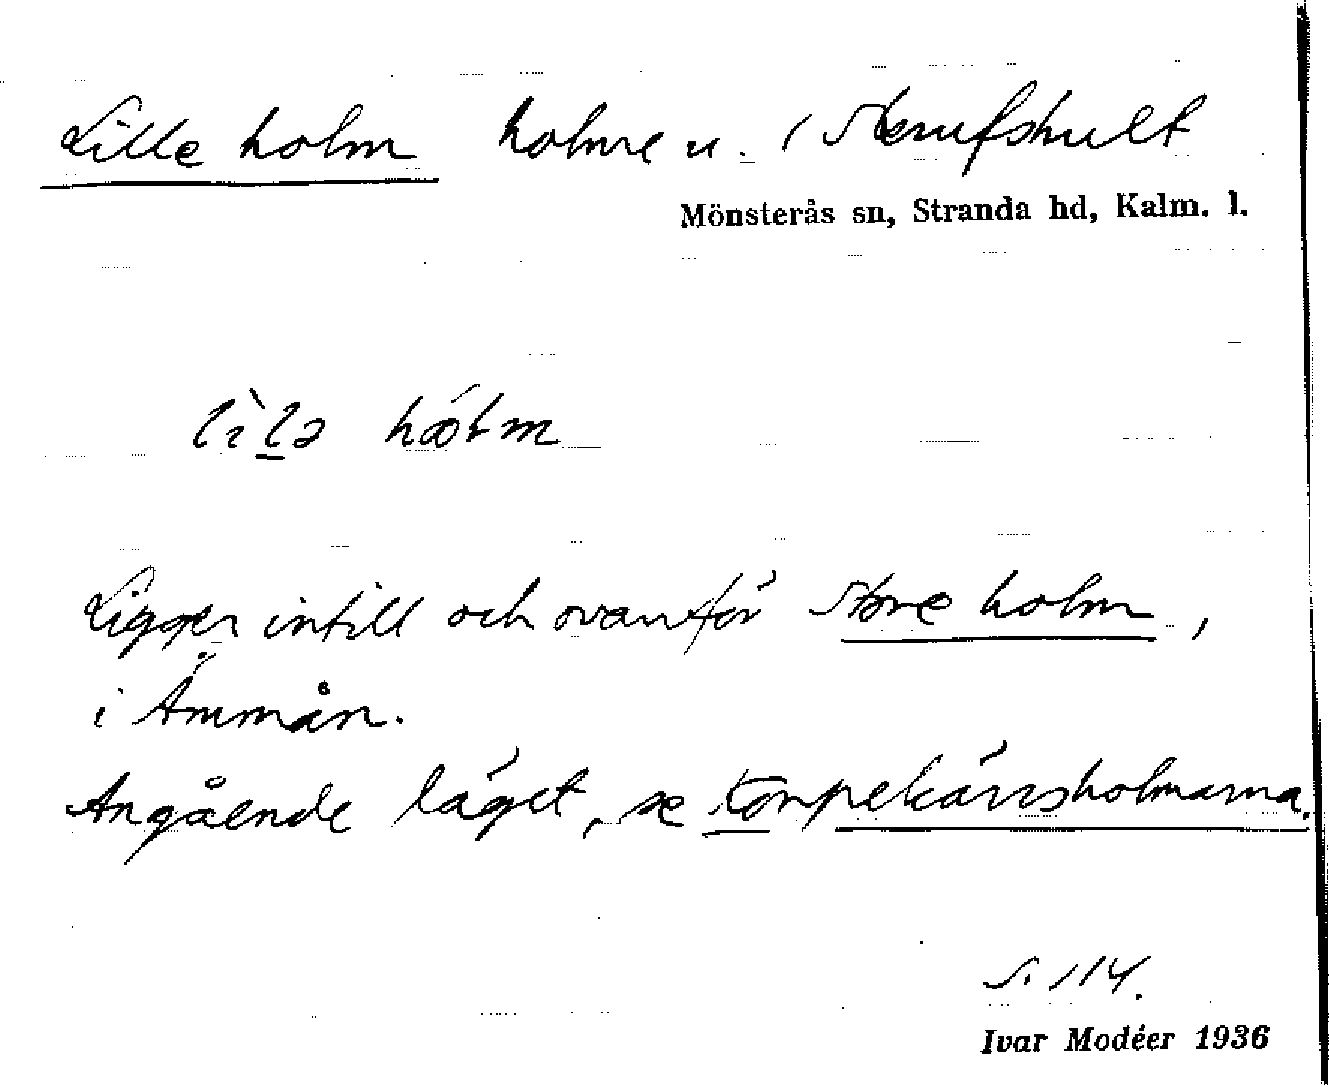 Lille holm holme u. i Strufshult
Mönsterås sn, Stranda hd, Kalm. l.
lìlə hól̵m
Ligger intill och ovanför Store holm,
i Åmmån.
Angående läget, se Törpekärrsholmarna.
S. 114.
Ivar Modéer 1936